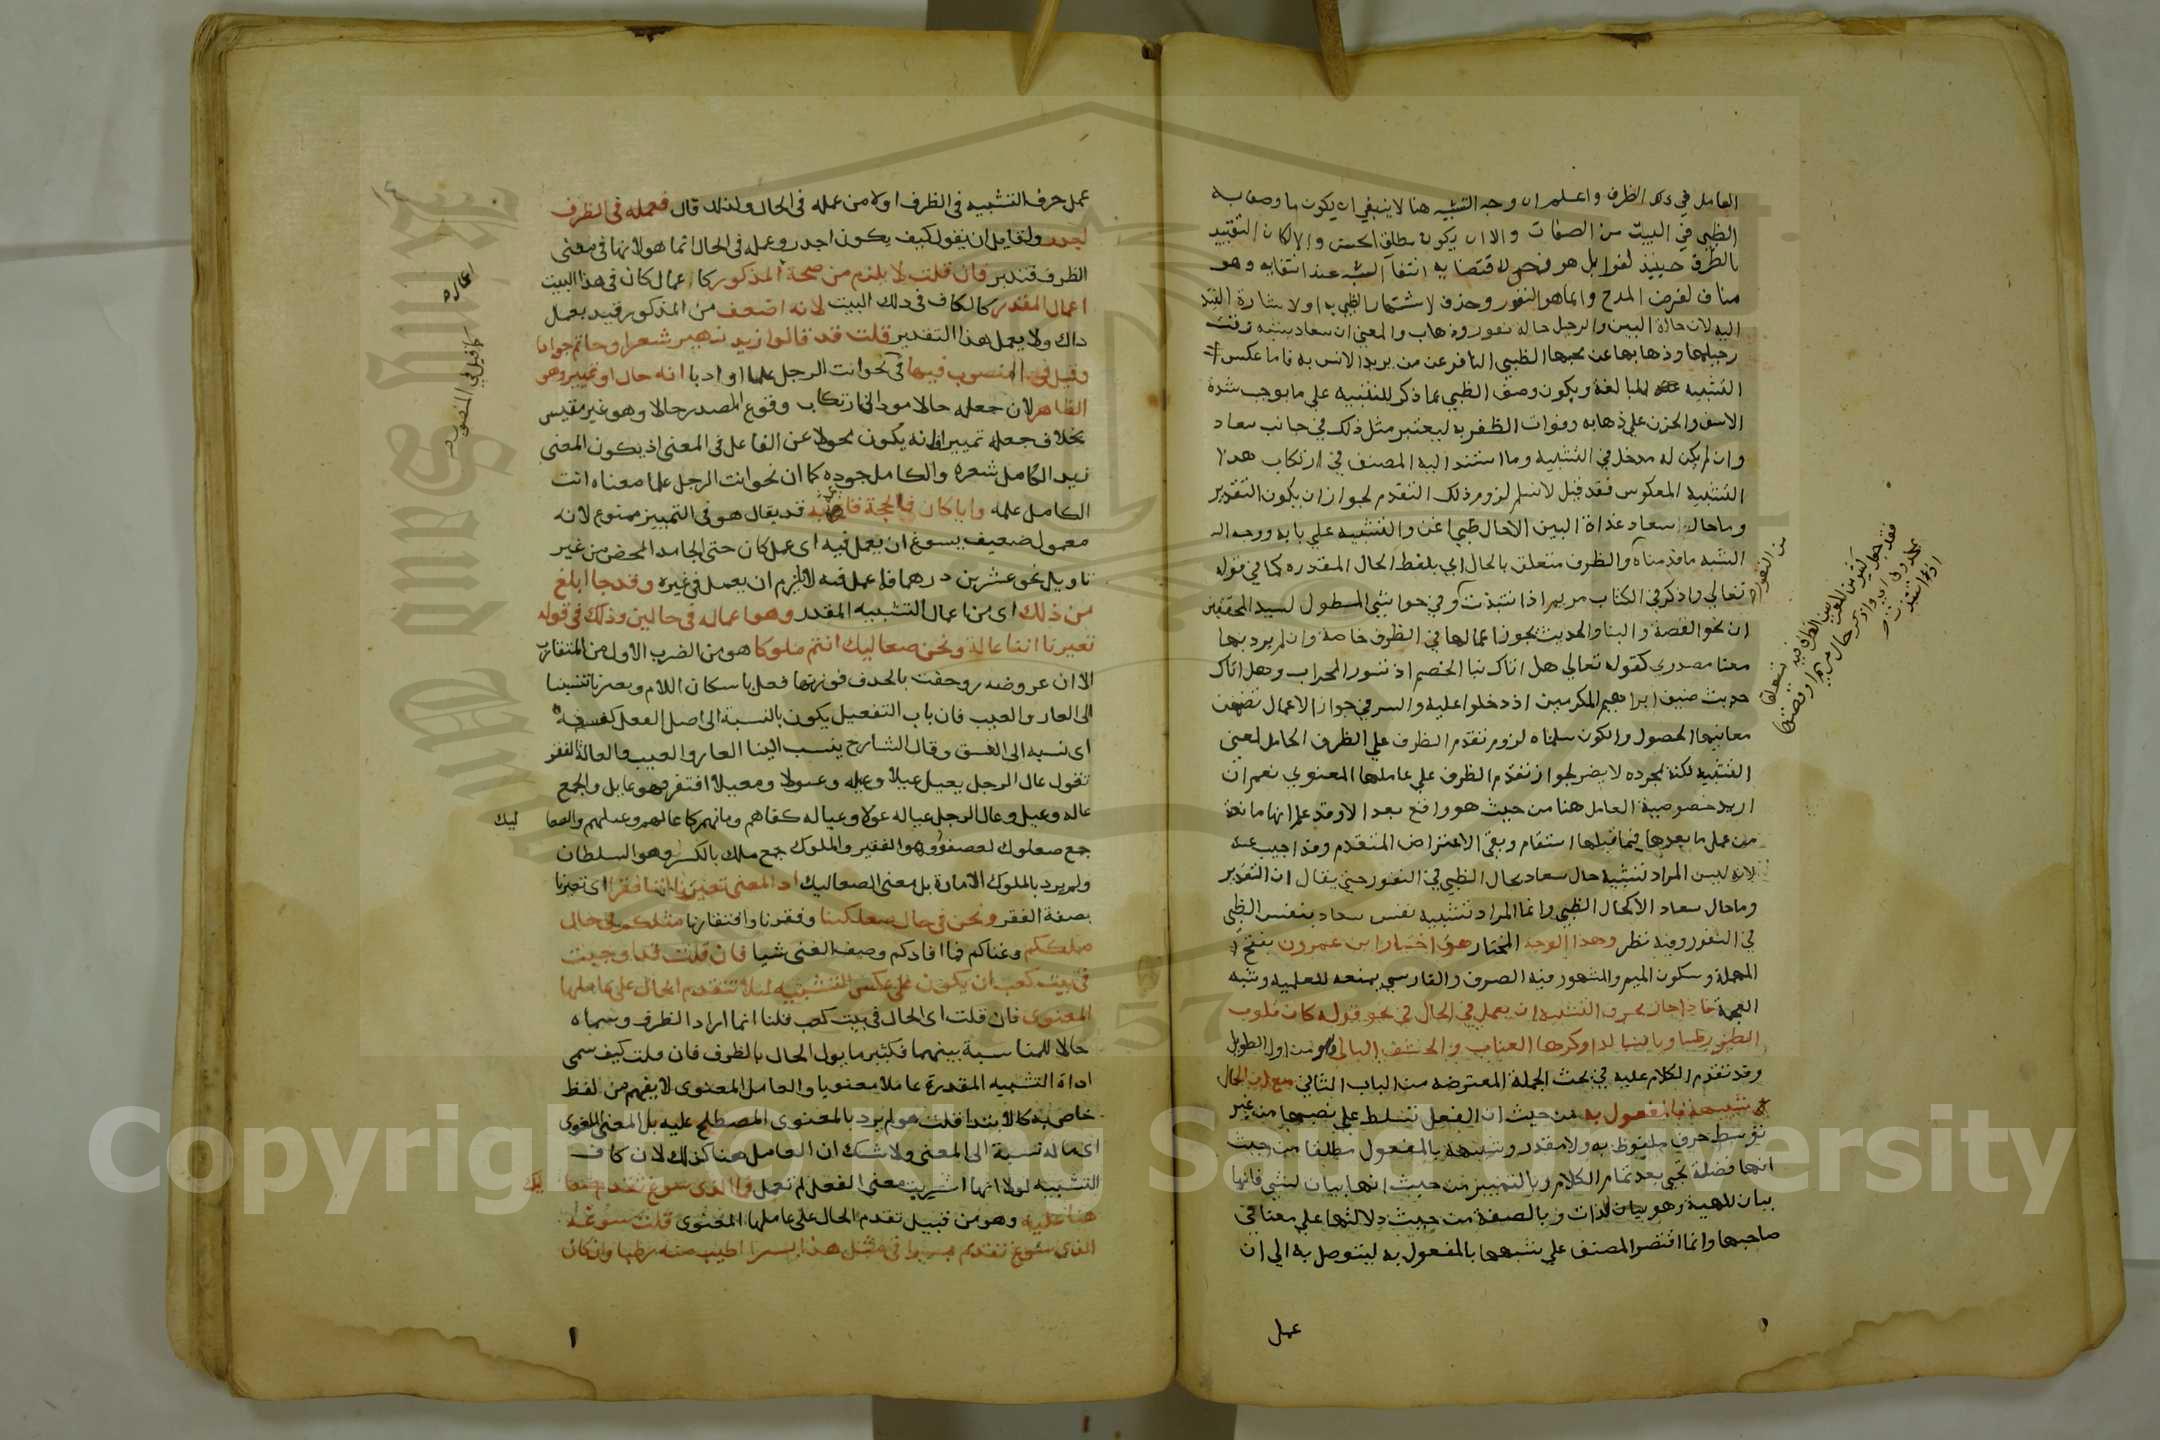 العامل في ذلك الظرف واعلم ان وجه التشبيه هنا لا ينبغي ان يكون ما وصفا به
الظبي في البيت من الصفات والا ان يكون مطلق الحسن والا لكان التقييد
بالظرف حينئذ لغوا بل هو مخل لاقتضايه انتفآ الشبه عند انتفايه وهو
مناف لغرض المدح وانما هو النفور وحذف لاشتهار الظبي به او لاشارة القيد
اليه لان حالة البين والرحيل حالة نفور وذهاب والمعني ان سعاد يشبه وقت
رحيلها وذهابها عن محبها الظبي النافر عن من يريد الانس به فاما عكس
التشبيه للمبالغة ويكون وصف الظبي بما ذكر للتنبيه علي ما يوجب شدة
الاسف والحزن علي ذهابه وفوات الظفر به ليعتبر مثل ذلك في جانب سعاد
وان لم يكن له مدخل في التشبيه وما استند اليه المصنف في ارتكاب هذا
التشبيه المعكوس فقد قيل لا نسلم لزوم ذلك التقدم لجواز ان يكون التقدير
وما حال سعاد غداة البين الا حال ظبي اغن والتشبيه علي بابه ووجه
الشبه ما قدمناه والظرف متعلق بالحال اي بلفظ الحال المقدره كما في قوله
تعالي واذكر في الكتاب مريم اذ انتبذت وفي حواشي المطول لسيد المحققين
ان نحو القصة والنبا والحديث يجوز اعمالها في الظرف خاصة وان لم يرد بها
معنا مصدري كقوله تعالي هل اتاك نبا الخصم اذ تسور المحراب وهل اتاك
حديث ضيف ابراهيم المكرمين اذ دخلوا عليه والسر في جواز الاعمال تضمن
معانيها الحصول والكون سلمناه لزوم تقدم الظرف علي الظرف الحامل لمعني
التشبيه لكنه لمجرده لا يضر لجواز تقدم الظرف علي عاملها المعنوي نعم ان
اريد خصوصية العامل هنا من حيث هو واقع بعد الا وقد علم انها مانعة
من عمل ما بعدها فيما قبلها استقام وبقي الاعتراض المتقدم وقد اجيب عنه
بانه ليس المراد تشبيه حال سعاد بحال الظبي في النفور حتي يقال ان التقدير
وما حال سعاد الا كحال الظبي وانما المراد تشبيه نفس سعاد بنفس الظبي
في النفور وفيه نظر وهذا الوجه المختار هو اختيار ابن عمرون بفتح
المهملة وسكون الميم والمشهور فيه الصرف والفارسي يمنعه للعلمية وشبه
العجمة فاذا جاز لحرف التشبيه ان يعمل في الحال في نحو قوله كان قلوب
الطير رطبا ويابسا لدا وكرها العناب والحشف البالي وهو من اول الطويل
وقد تقدم الكلام عليه في بحث الجملة المعترضه من الباب الثاني مع ان الحال
شبيهة بالمفعول به من حيث ان الفعل تسلط علي نصبها من غير
توسط حرف ملفوظ به ولا مقدر وشبيهه بالمفعول مطلقا من حيث
انها فضلة تجي بعد تمام الكلام وبالتمييز من حيث انها بيان لشي فانها
بيان للهيئة وهو بيان الذات وبالصفة من حيث دلالتها علي معنا في
صاحبها وانما اقتصر المصنف علي شبهها بالمفعول به ليتوصل به الي ان
عمل
عمل حرف التشبيه في الظرف اولا من عمله في الحال ولذلك قال فعمله في الظرف
اجدر ولقايل ان يقول كيف يكون اجدر وعمله في الحال انما هو لانها في معني
الظرف فتدبر فان قلت لا يلزم من صحة المذكور كا عمال كان في هذا البيت
اعمال المقدر كالكاف في ذلك البيت لانه اضعف من المذكور فيد يعمل
ذاك ولا يعمل هذا التقدير قلت قد قالوا زيد زهير شعرا وحاتم جوادا
وقيل في المنصوب فيها في نحو انت الرجل علما او ادبا انه حال او تمييز وهو
الظاهر لان جعله حالا مود الي ارتكاب وقوع المصدر حالا وهو غير مقيس
بخلاف جعله تمييزا فانه يكون محولا عن الفاعل في المعني اذ يكون المعني
زيد الكامل شعره والكامل جوده كما ان نحو انت الرجل علما معناه انت
الكامل علمه وايا كان فالحجة قايمة به قد يقال هو في التمييز ممنوع لانه
معمول ضعيف يسوغ ان يعمل فيه اي عمل كان حتي الجامد المحض من غير
تاويل نحو عشرين درهما فاعمل فيه لا يلزم ان يعمل في غيره وقد جا ابلغ
من ذلك اي من اعمال التشبيه المقدر وهو اعماله في حالين وذلك في قوله
تعيرنا اننا عالة ونحن صعاليك انتم ملوكا هو من الضرب الاول من المتقارب
الا ان عروضه روحفت بالحذف فوزنها فعل باسكان اللام وتعيرنا تنسبنا
الي العار والعيب فان باب التفعيل يكون بالنسبة الي اصل الفعل كفسقه
اي نسبه الي الفسق وقال الشارح ينسب الينا العار والعيب والعالة الفقر
تقول عال الرجل يعيل عيلا وعيله وعيولا ومعيلا افتقر فهو عايل والجمع
عاله وعيل وعال الرجل عياله عولا وعياله كفاهم ومانهم كاعالهم وعيلهم والصعا
ليك
جمع صعلوك لعصفور وهو الفقير والملوك جمع ملك بالكسر وهو السلطان
ولم يرد بالملوك الامارة بل معني الصعاليك اد المعني تعيرنا اننا فقرا اي تعيرنا
بصفة الفقر ونحن في حال صعلكتنا وفقرنا وافتقارنا مثلكم في حال
ملككم وغناكم فما افادكم وصف الغني شيا فان قلت قد اوجبت
في بيت كعب ان يكون علي عكس التشبيه لئلا تتقدم الحال علي عاملها
المعنوي فان قلت اي الحال في بيت كعب قلنا انما اراد الظرف وسماه
حالا للمناسبة بينهما فكثير ما يول الحال بالظرف فان قلت كيف سمي
اداة التشبيه المقدرة عاملا معنويا والعامل المعنوي لا يفهم من لفظ
خاص به كالابتدا قلت هو لم يرد بالمعنوي المصطلح عليه بل المعني اللغوي
اي ماله نسبة الي المعني ولا شك ان العامل هنا كذلك لان كاف
التشبيه لولا انها اشربت معني الفعل لم تعمل فما الذي سوغ تقدم صعا
ليك
هنا عليه وهو من قبيل تقدم الحال علي عاملها المعنوي قلت سوغه
الذي سوغ تقدم بسرا في مثل هذا بسرا اطيب منه رطبا وان كان